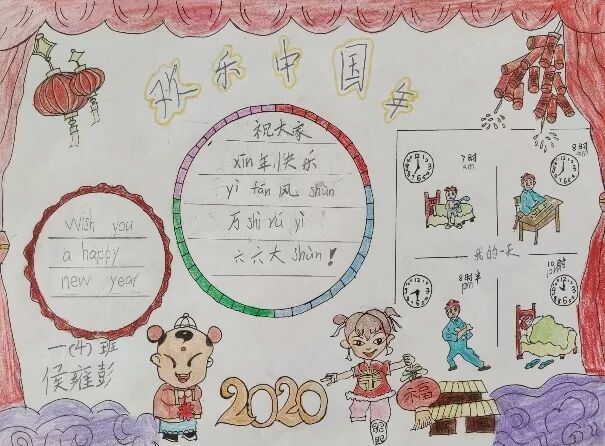 欢乐中国年
祝大家
xīn年快乐
yì fán风 shùn
万shì rú yì
六六大shùn!
Wish you
a happy
new year
7时
am
8时
am
我的一天
8时半
pm
10时
pm
一(4)班
侯雍彭
2020
福